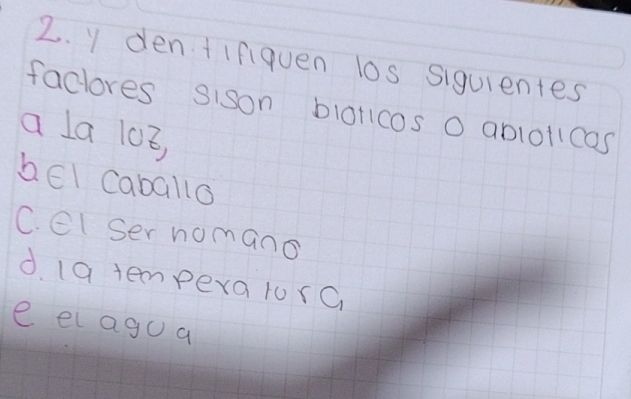 2. y dentifiquen los siguientes
faclores sison bioticos o abioticas
a la loz,
b El caballo
C. El ser nomano
d. la temperalura
e el agua